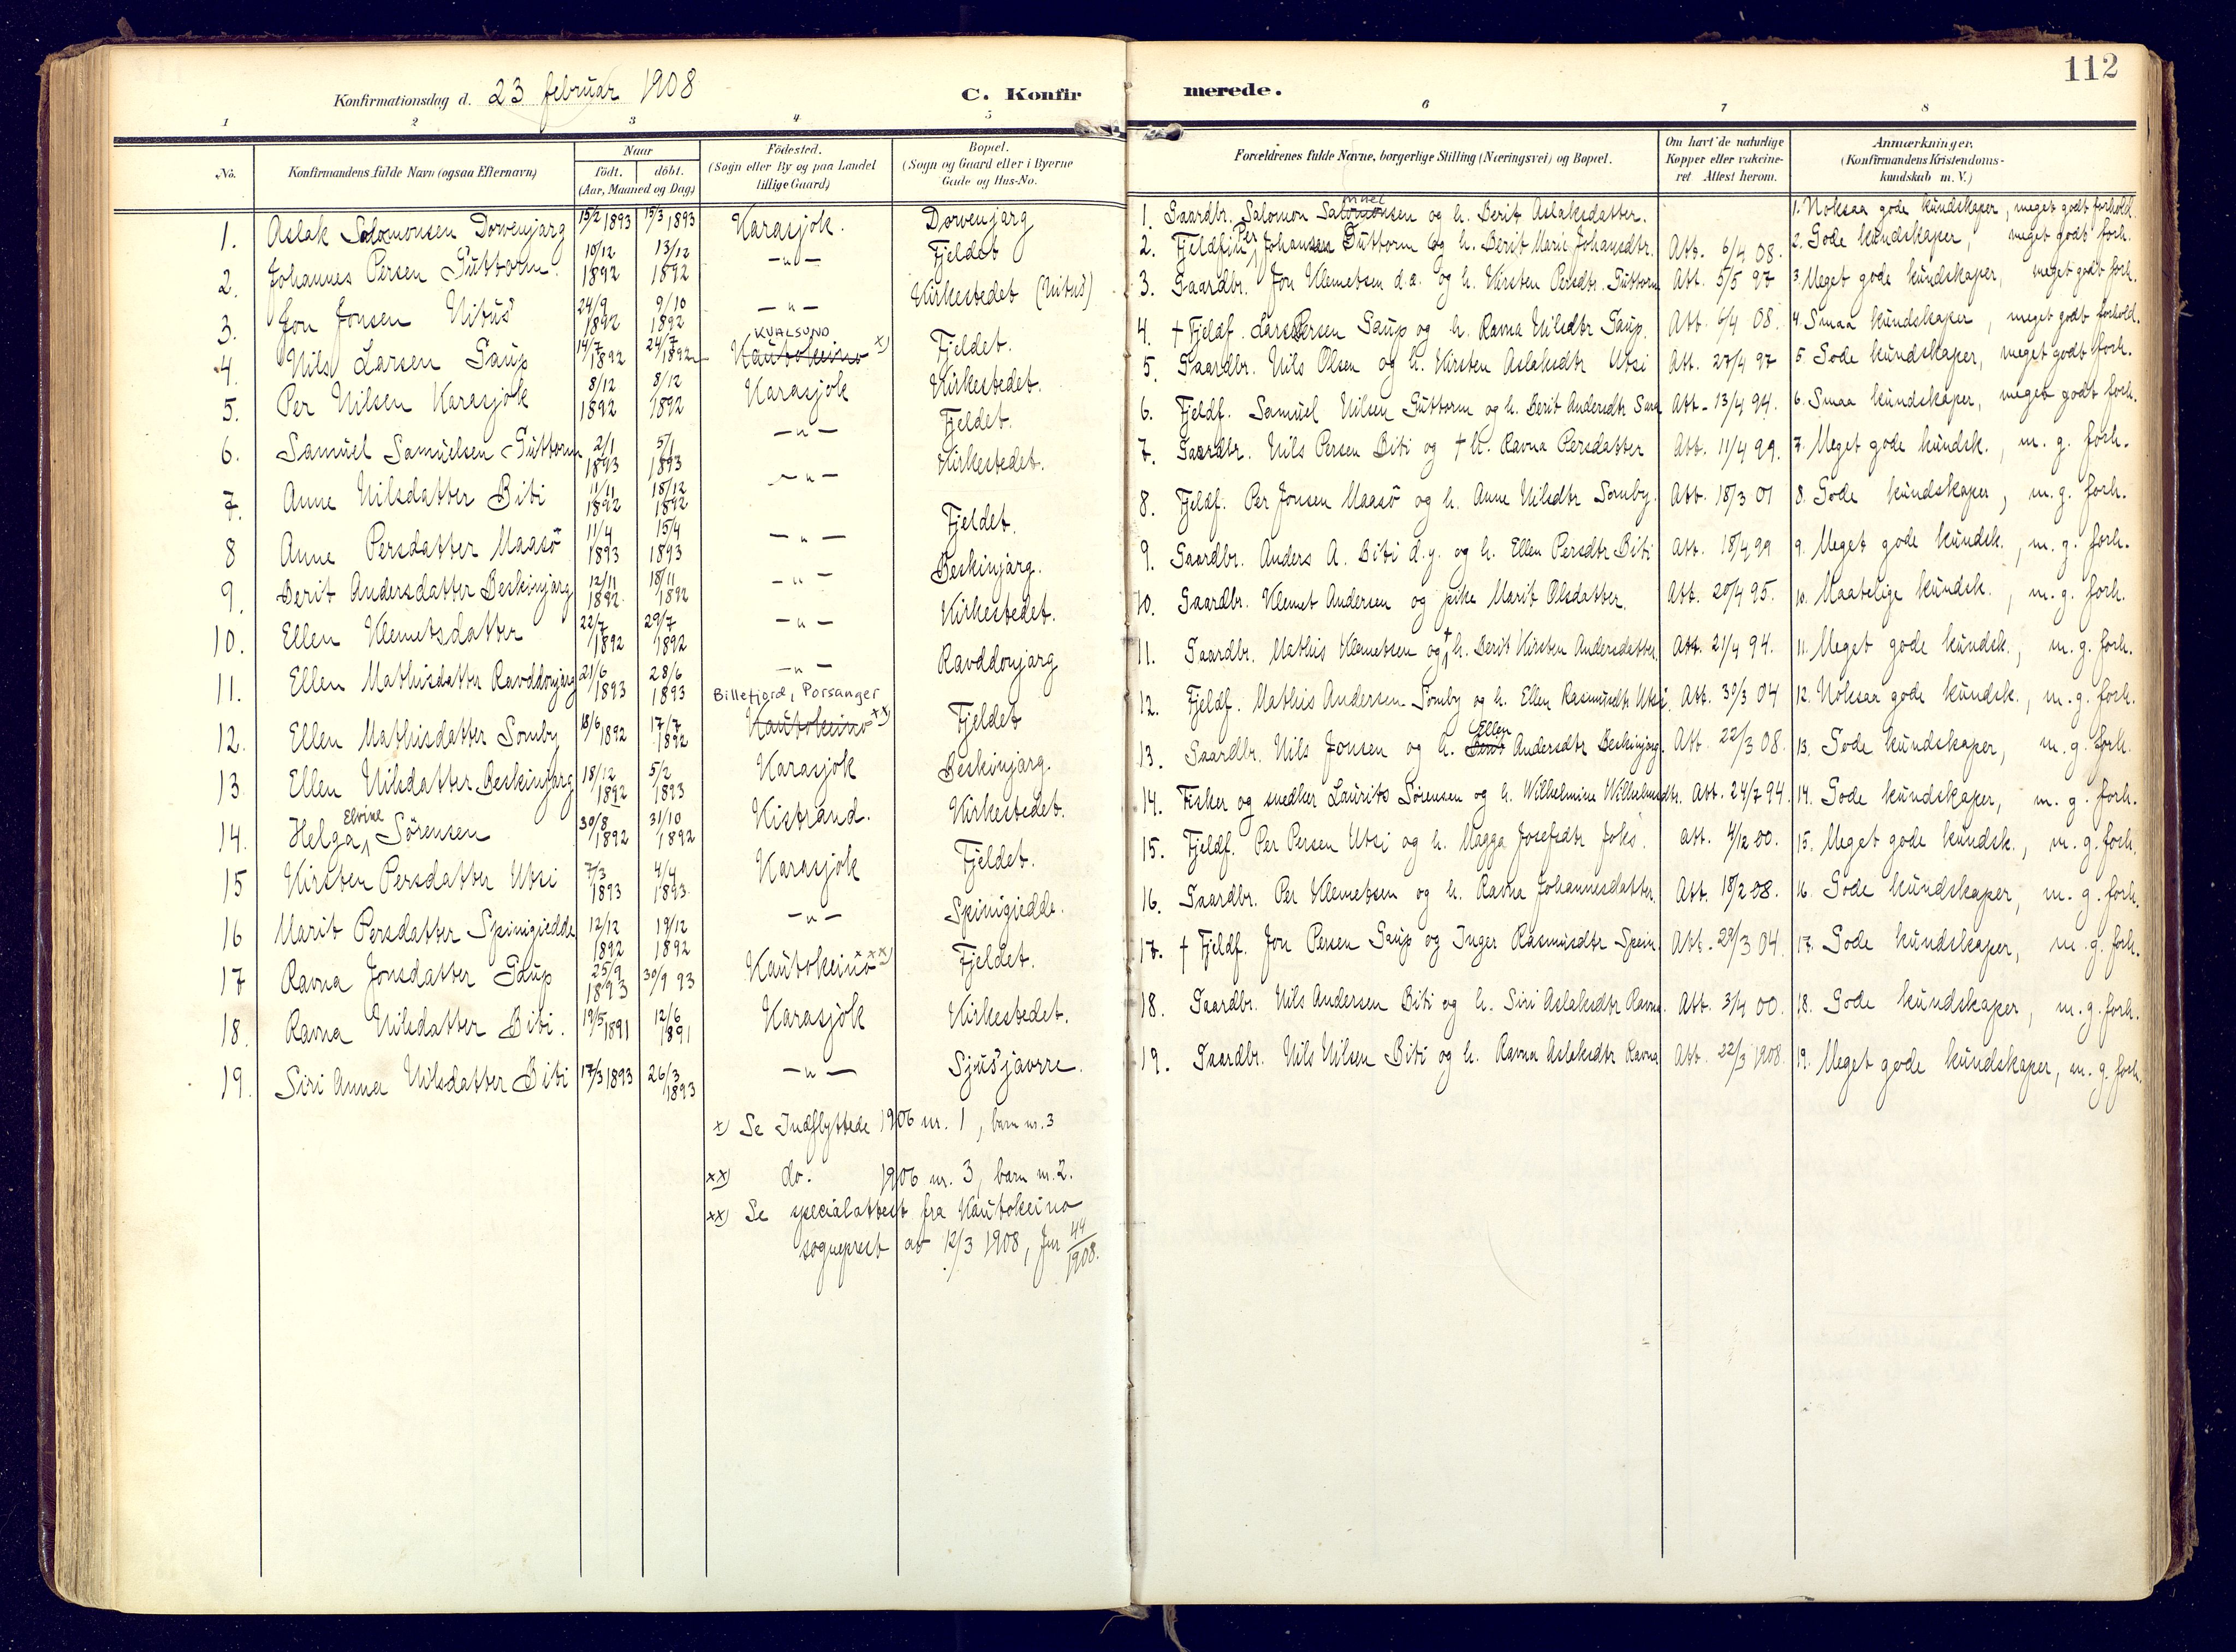 112
Konfirmationsdag d. 23 februar 1908
C. Konfirmerede.
1 2 3 4 5 6 7 8
No. Konfirmandens fulde Navn (ogsaa Efternavn) Naar födt. döbt. (Aar, Maaned og Dag) Födested. (Sogn eller By og paa Landet tillige Gaard) Bopæl. (Sogn og Gaard eller i Byerne Gade og Hus-No. Forældrenes fulde Navne, borgerlige Stilling (Næringsvei) og Bopæl. Om havt de naturlige Kopper eller vakcineret Attest herom. Anmærkninger. (Konfirmandens Kristendomskundskab m. V.)
1. Aslak Salomonsen Dorvenjarg 15/2 1893 15/3 1893 Karasjok. Dorvenjarg 1. Gaardbr. Salomon Salomonsen og h. Berit Aslaksdatter. 1. Noksaa gode kundskaper, meget godt forhold.
2. Johannes Persen Guttorm. 10/12 1892 13/12 1892 -"- Fjeldet 2. Fjeldfin Per Johansen Guttorm og h. Berit Marie Johansdtr. Att. 6/4 08. 2. Gode kundskaper, meget godt forh.
3. Jon Jonsen Nitus 24/9 1892 9/10 1892 -"- Kirkestedet (Nitus) 3. Gaardbr. Jon Klemetsen d.æ. og h. Kirsten Persdtr. Guttorm Att. 5/5 97 3. Meget gode kundskaper, meget godt forh.
4. Nils Larsen Gaup 14/7 1892 24/7 1892 KVALSUND Kautokeino x) Fjeldet. 4. + Fjeldf. Lars Persen Gaup og h. Ravna Nilsdtr Gaup. Att. 6/4 08. 4. Smaa kundskaper, meget godt forhold.
5. Per Nilsen Karasjok 8/12 1892 8/12 1892 Karasjok Kirkestedet. 5. Gaardbr. Nils Olsen og h. Kirsten Aslaksdtr Utsi Att. 27/4 97 5. Gode kundskaper, meget godt forh.
6. Samuel Samuelsen Guttorm 2/1 1893 5/1 1893 -"- Fjeldet. 6. Fjeldf. Samuel Nilsen Guttorm og h. Berit Andersdtr Sara Att. 13/4 94. 6. Smaa kundskaper, meget godt forh.
7. Anne Nilsdatter Biti 11/11 1892 18/12 1892 -"- Kirkestedet. 7. Gaardbr. Nils Persen Biti og + h. Ravna Persdatter Att. 11/4 99. 7. Meget gode kundsk., m. g. forh.
8 Anne Persdatter Maasö 11/4 1893 15/4 1893 -"- Fjeldet. 8. Fjeldf. Per Jonsen Maasö og h. Anne Nilsdtr Somby. Att. 18/3 01 8. Gode kundskaper, m. g. forh.
9. Berit Andersdatter Beskinjarg 12/11 1892. 18/11 1892 -"- Beskinjarg. 9. Gaardbr. Anders A. Biti d.y. og h. Ellen Persdtr Biti Att. 18/4 99 9. Meget gode kundsk., m. g. forh.
10. Ellen Klemetsdatter 22/7 1892 29/7 1892 -"- Kirkestedet. 10. Gaardbr. Klemet Andersen og pike Marit Olsdatter. Att. 20/4 95. 10. Maatelige kundsk., m. g. forh.
11. Ellen Mathisdatter Ravddonjarg 21/6 1893 28/6 1893 -"- Ravddonjarg 11. Gaardbr. Mathis Klemetsen og + h. Berit Kirsten Andersdatter. Att. 21/4 94. 11. Meget gode kundsk., m. g. forh.
12. Ellen Mathisdatter Somby 18/6 1892 17/7 1892 Billefjord, Porsanger Kautokeino xx) Fjeldet 12. Fjeldf. Mathis Andersen Somby og h. Ellen Rasmusdtr Utsi. Att. 30/3 04 12. Noksaa gode kundsk., m. g. forh.
13 Ellen Nilsdatter Beskinjarg 18/12 1892 5/2 1893 Karasjok Beskinjarg. 13. Gaardbr. Nils Jonsen og h. Berit Ellen Andersdtr Beskinjarg. Att. 22/3 08. 13. Gode kundskaper, m. g. forh.
14. Helga Elvine Sörensen 30/8 1892 31/10 1892 Kistrand. Kirkestedet. 14. Fisker og snedker Laurits Sörensen og h. Wilhelmine Wilhelmsdtr. Att. 24/7 94. 14. Gode kundskaper, m. g. forh.
15 Kirsten Persdatter Utsi 7/3 1893 4/4 1893 Karasjok Fjeldet. 15. Fjeldf. Per Persen Utsi og h. Magga Josefsdtr Joks. Att. 4/12 00. 15. Meget gode kundsk., m. g. forh.
16 Marit Persdatter Spinigiedde 12/12 1892 19/12 1892 -"- Spinigiedde. 16. Gaardbr. Per Klemetsen og h. Ravna Johannesdatter. Att. 18/2 08. 16. Gode kundskaper, m. g. forh.
17 Ravna Jonsdatter Gaup 25/9 1893 30/9 93 Kautokeino xxx) Fjeldet. 17. + Fjeldf. Jon Persen Gaup og Inger Rasmusdtr Spein. Att. 29/3 04. 17. Gode kundskaper, m. g. forh.
18. Ravna Nilsdatter Biti. 19/5 1891 12/6 1891 Karasjok Kirkestedet. 18. Gaardbr. Nils Andersen Biti og h. Siri Aslaksdtr Ravna. Att. 3/4 00. 18. Gode kundskaper, m. g. forh.
19. Siri Anna Nilsdatter Biti 17/3 1893 26/3 1893 -"- Sjusjavrre. 19. Gaardbr. Nils Nilsen Biti og h. Ravna Aslaksdtr Ravna Att. 22/3 1908. 19. Meget gode kundskaper, m. g. forh.
x) Se Indflyttede 1906 nr. 1, barn nr. 3
xx) do. 1906 nr. 3, barn nr. 2.
xx) Se specialattest fra Kautokeino
sogneprest av 12/3 1908, Jnr 44/1908.